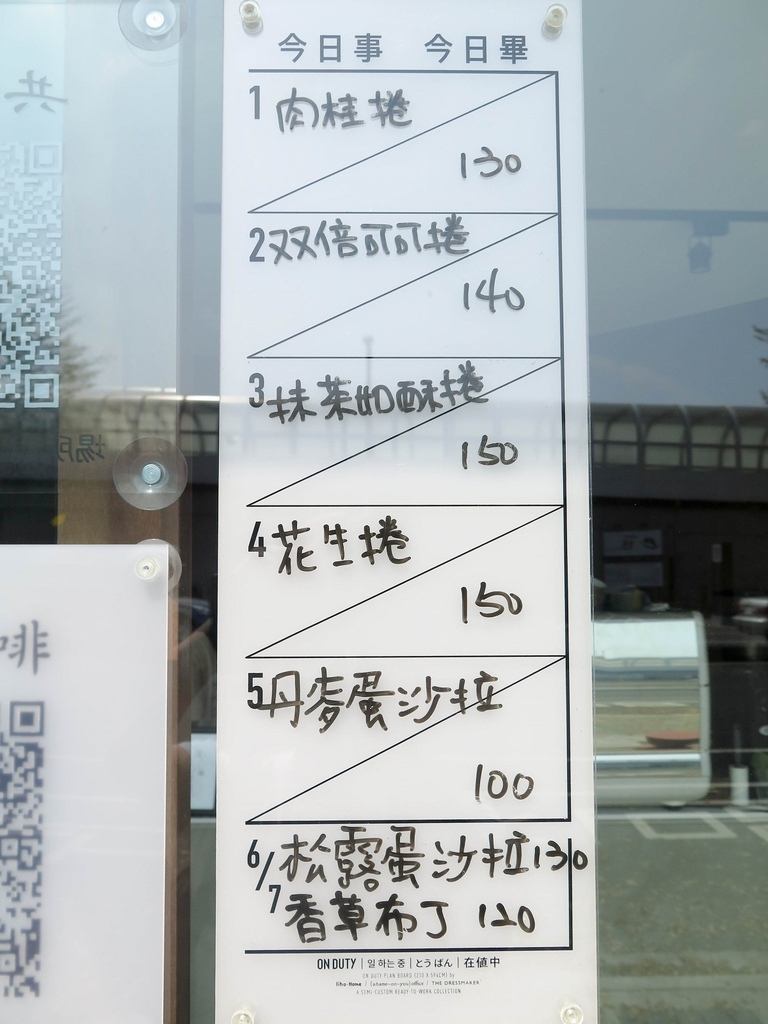 今日事 今日畢
1 肉桂捲
130
2 双倍可可捲
140
3 抹茶如酥捲
150
4 花生捲
150
5 丹麥蛋沙拉
100
6/7 松露蛋沙拉 130
香草布丁 120
ON DUTY | 일하는중 | とうばん | 在値中
ON DUTY PLAN BOARD (210 X 594CM) by
A SEMI-CUSTOM READY-TO-WORK COLLECTION
共
場所
啡